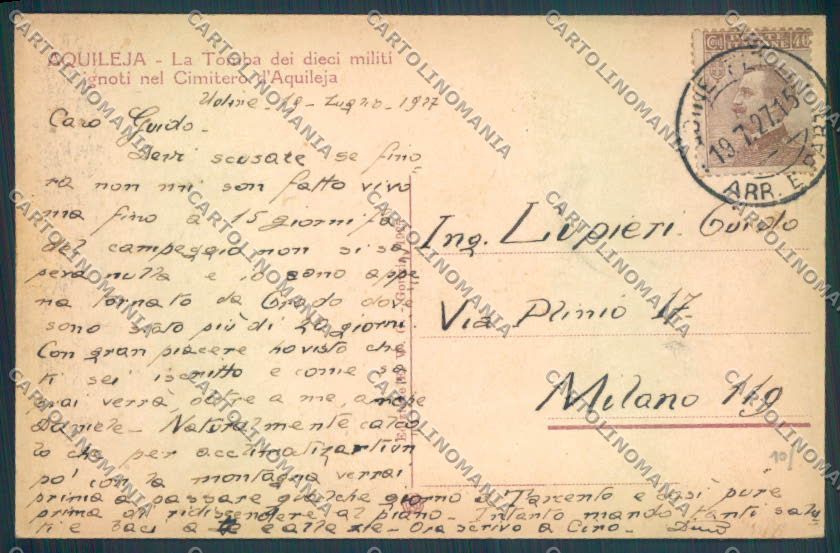 AQUILEJA - La Tomba dei dieci militi
ignoti nel Cimitero d'Aquileja
Udine, 19 - Luglio - 1927
Caro Guido -
Devi scusare se fino
ra non mi son fatto vivo
ma fino a 15 giorni fa
del campeggio non si sa
peva nulla e io sono appe
na tornato da Grado dove
sono stato più di 20 giorni.
Con gran piacere ho visto che
ti sei iscritto e come sa
prai verrà, oltre a me, anche
Daniele - Naturalmente calco
lo che per acclimatizzarti un
po' con la montagna verrai
prima a passare qualche giorno a Tarcento e così pure
prima di ridiscendere al piano - Intanto mando tanti salu
ti e baci a te e alle zie - Ora scrivo a Ciro - Dino
Ing. Lupieri Guido
Via Plinio 17-
Milano 119
10/
CENT. 40
UDINE
19.7.27.15
ARR. E PAR
CARTOLINOMANIA